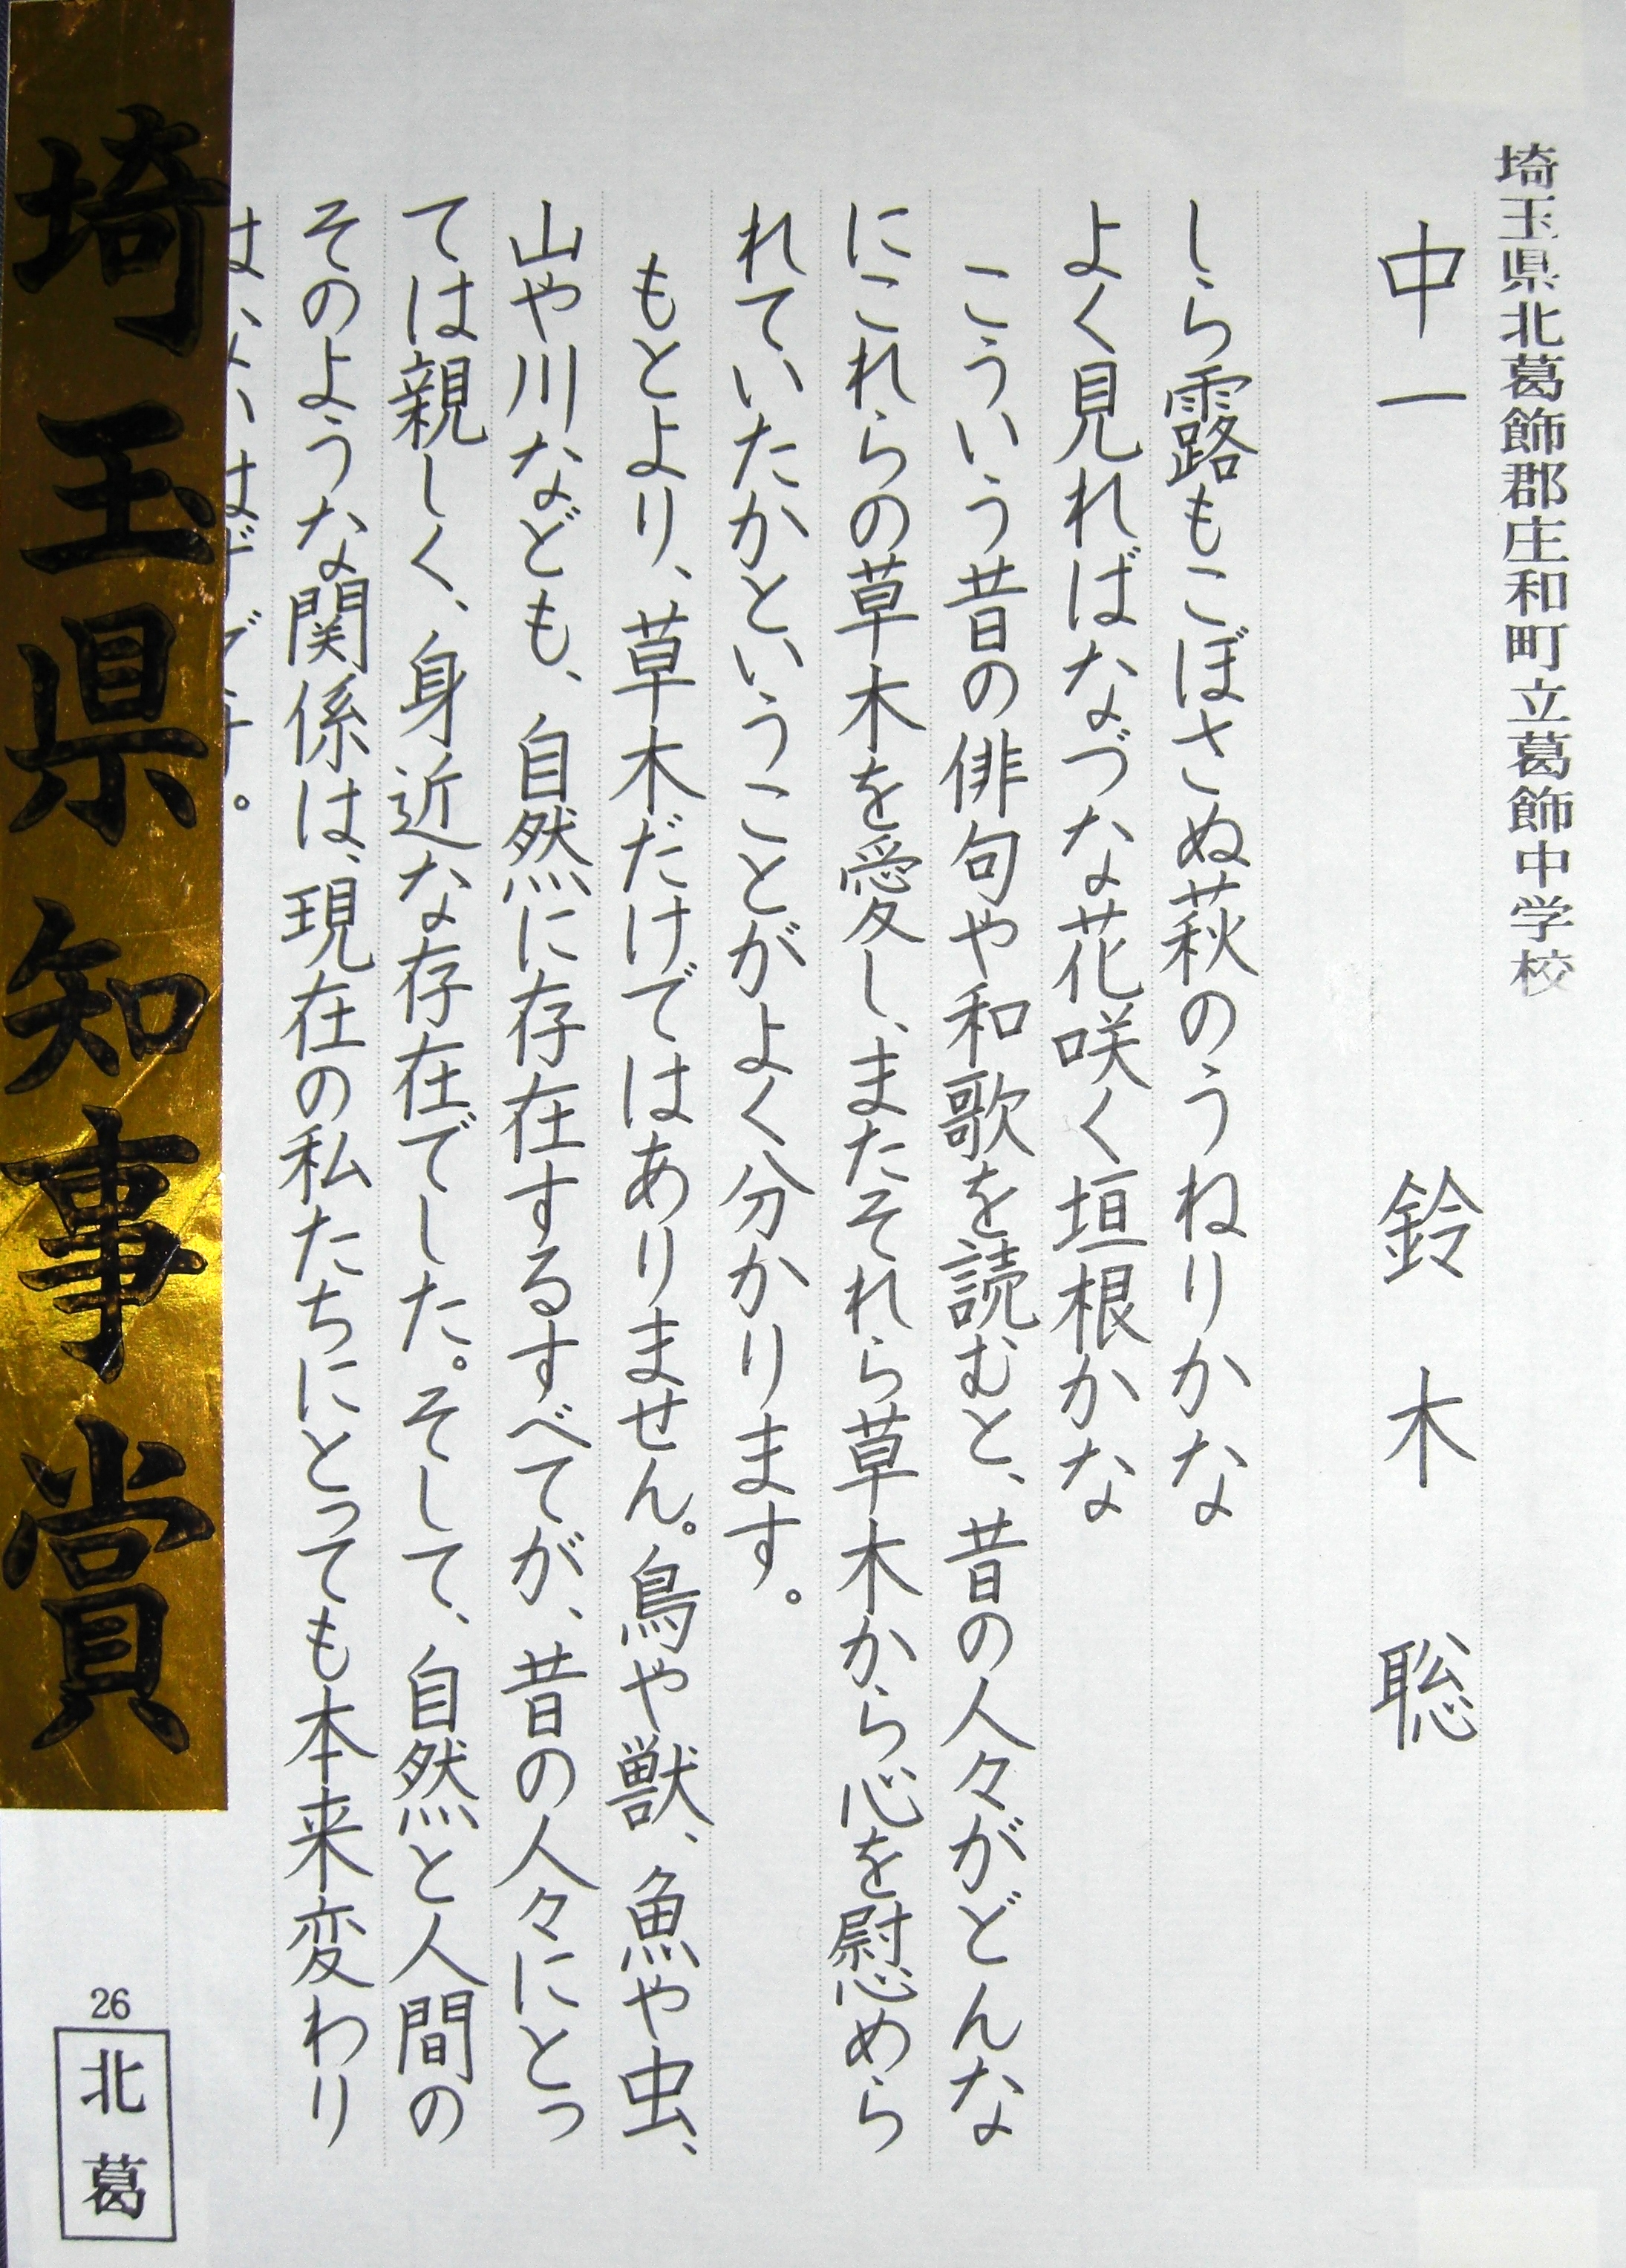 埼玉県北葛飾郡庄和町立葛飾中学校
中一 鈴木聡
しら露もこぼさぬ萩のうねりかな
よく見ればなづな花咲く垣根かな
こういう昔の俳句や和歌を読むと、昔の人々がどんな
にこれらの草木を愛し、またそれら草木から心を慰めら
れていたかということがよく分かります。
もとより、草木だけではありません。鳥や獣、魚や虫、
山や川なども、自然に存在するすべてが、昔の人々にとっ
ては親しく、身近な存在でした。そして、自然と人間の
そのような関係は、現在の私たちにとっても本来変わり
埼玉県知事賞
26
北葛